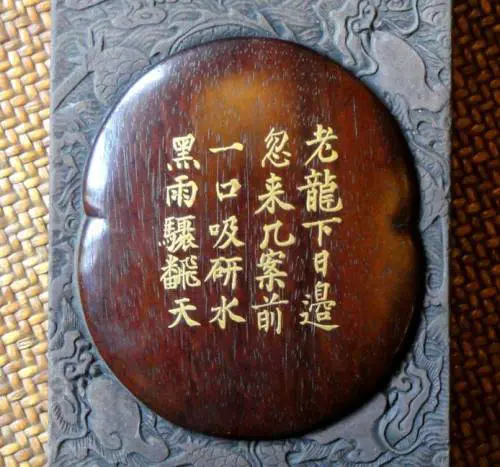 老龍下日邊
忽来几案前
一口吸研水
黑雨驟飜天